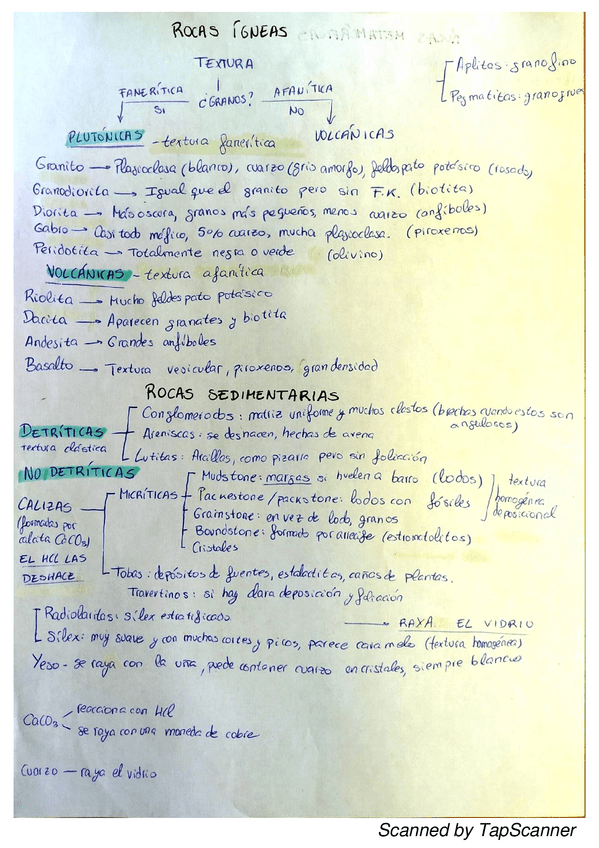 ROCAS ÍGNEAS
TEXTURA
FANERÍTICA ¿GRANOS? AFANÍTICA
SI NO
Aplitas: granofino
Pegmatitas: granogrue
PLUTÓNICAS - textura fanerítica VOLCÁNICAS
Granito → Plagioclasa (blanco), cuarzo (gris amorfo), feldespato potásico (rosado)
Granodiorita → Igual que el granito pero sin F.K. (biotita)
Diorita → Más oscura, granos más pequeños, menos cuarzo (anfíboles)
Gabro → Casi todo máfico, 5% cuarzo, mucha plagioclasa. (piroxenos)
Peridotita → Totalmente negra o verde (olivino)
VOLCÁNICAS - textura afanítica
Riolita → Mucho feldespato potásico
Dacita → Aparecen granates y biotita
Andesita → Grandes anfíboles
Basalto → Textura vesicular, piroxenos, gran densidad
ROCAS SEDIMENTARIAS
Conglomerados: matriz uniforme y muchos clastos (brechas cuando estos son angulosos)
DETRÍTICAS
textura clástica
Areniscas: se deshacen, hechas de arena
Lutitas: Arcillas, como pizarra pero sin foliación
NO DETRÍTICAS
CALIZAS
(formadas por
calcita CaCO3)
EL HCL LAS
DESHACE
MICRÍTICAS
Mudstone: margas si huelen a barro (lodos)
Packestone/packstone: lodos con fósiles
Grainstone: en vez de lodo, granos
Boundstone: formado por arrecife (estromatolitos)
Cristales
textura
homogénea
deposicional
Tobas: depósitos de fuentes, estalactitas, cañas de plantas.
Travertinos: si hay clara deposición y foliación
Radiolaritas: sílex estratificado
→ RAYA EL VIDRIO
Sílex: muy suave y con muchas cortes y picos, parece caramelo (textura homogénea)
Yeso - se raya con la uña, puede contener cuarzo en cristales, siempre blanco
CaCO3
reacciona con HCl
se raya con una moneda de cobre
Cuarzo — raya el vidrio
Scanned by TapScanner